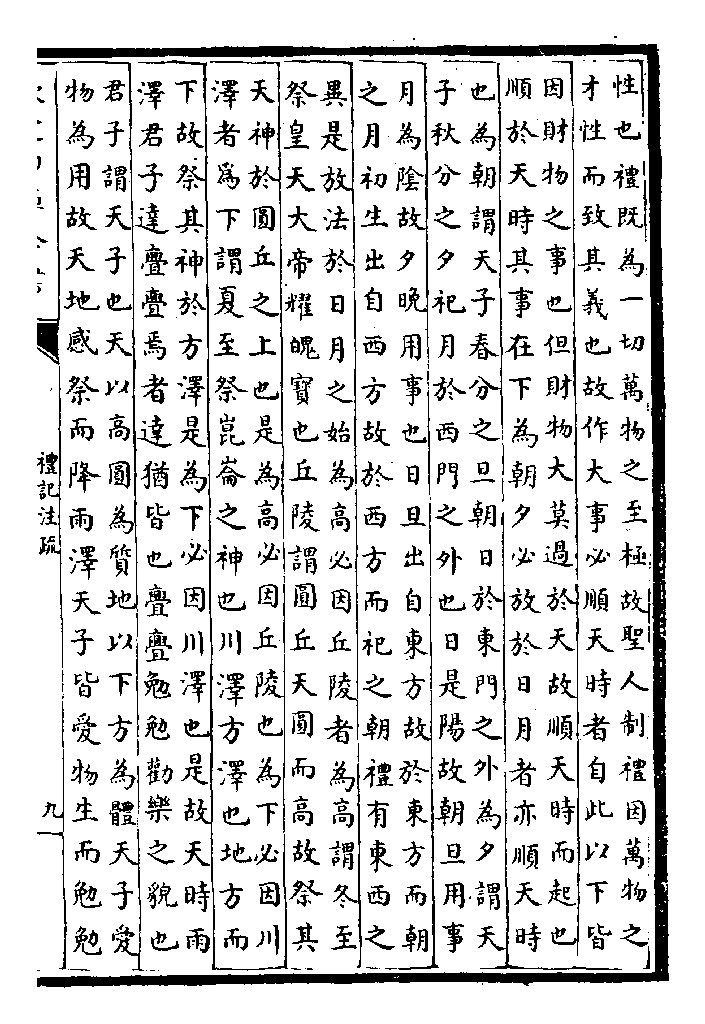 性也禮既為一切萬物之至極故聖人制禮因萬物之
才性而致其義也故作大事必順天時者自此以下皆
因財物之事也但財物大莫過於天故順天時而起也
順於天時其事在下為朝夕必放於日月者亦順天時
也為朝謂天子春分之旦朝日於東門之外為夕謂天
子秋分之夕祀月於西門之外也日是陽故朝旦用事
月為陰故夕晚用事也日旦出自東方故於東方而朝
之月初生出自西方故於西方而祀之朝禮有東西之
異是放法於日月之始為高必因丘陵者為高謂冬至
祭皇天大帝耀魄寶也丘陵謂圓丘天圓而高故祭其
天神於圓丘之上也是為高必因丘陵也為下必因川
澤者為下謂夏至祭崑崙之神也川澤方澤也地方而
下故祭其神於方澤是為下必因川澤也是故天時雨
澤君子達亹亹焉者達猶皆也亹亹勉勉勸樂之貌也
君子謂天子也天以高圓為質地以下方為體天子愛
物為用故天地感祭而降雨澤天子皆愛物生而勉勉
禮記注疏
九